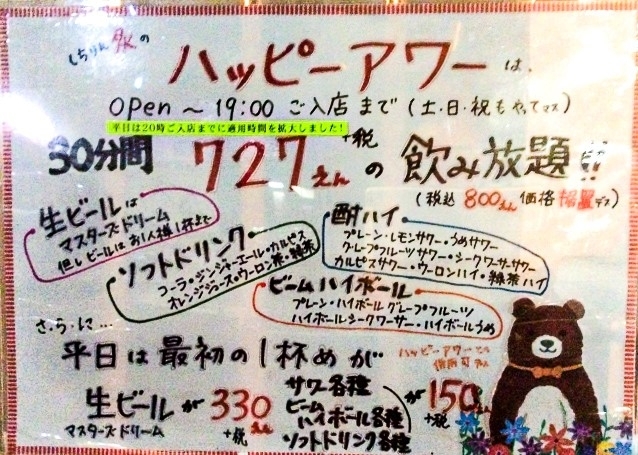 しちりん 炎の
ハッピーアワーは、
OPEN ～ 19:00 ご入店まで (土・日・祝もやってマス)
平日は20時ご入店までに適用時間を拡大しました!
30分間 727えん +税 の 飲み放題!!
(税込 800えん 価格 据置デス)
生ビールは
マスターズドリーム
但しビールはお1人様1杯まで
ソフトドリンク
コーラ・ジンジャーエール・カルピス
オレンジジュース・ウーロン茶・緑茶
酎ハイ
プレーン・レモンサワー・うめサワー
グレープフルーツサワー・シークワーサーサワー
カルピスサワー・ウーロンハイ・緑茶ハイ
ビームハイボール
プレーン・ハイボールグレープフルーツ
ハイボールシークワーサー・ハイボールうめ
さ・ら・に…
平日は最初の1杯めが
ハッピーアワーとの
併用可
生ビールが330えん +税
マスターズドリーム
サワー各種
ビームハイボール各種
ソフトドリンク各種
が150えん +税